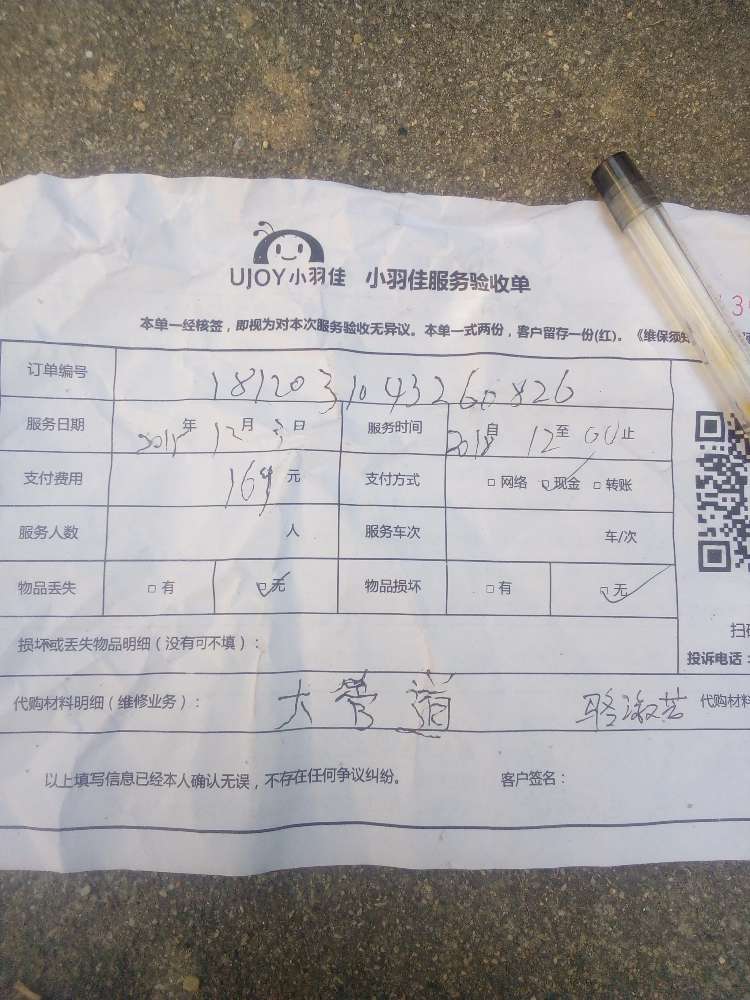 UJOY小羽佳 小羽佳服务验收单
本单一经核签，即视为对本次服务验收无异议。本单一式两份，客户留存一份(红)。《维保须知
订单编号 1812031043260826
服务日期 2018年12月3日 服务时间 2018自12至00止
支付费用 169元 支付方式 □网络 ☑现金 □转账
服务人数 人 服务车次 车/次
物品丢失 □有 ☑无 物品损坏 □有 ☑无
扫码
损坏或丢失物品明细（没有可不填）：
投诉电话：
代购材料明细（维修业务）： 大管道 骆淑芸 代购材料
以上填写信息已经本人确认无误，不存在任何争议纠纷。 客户签名：